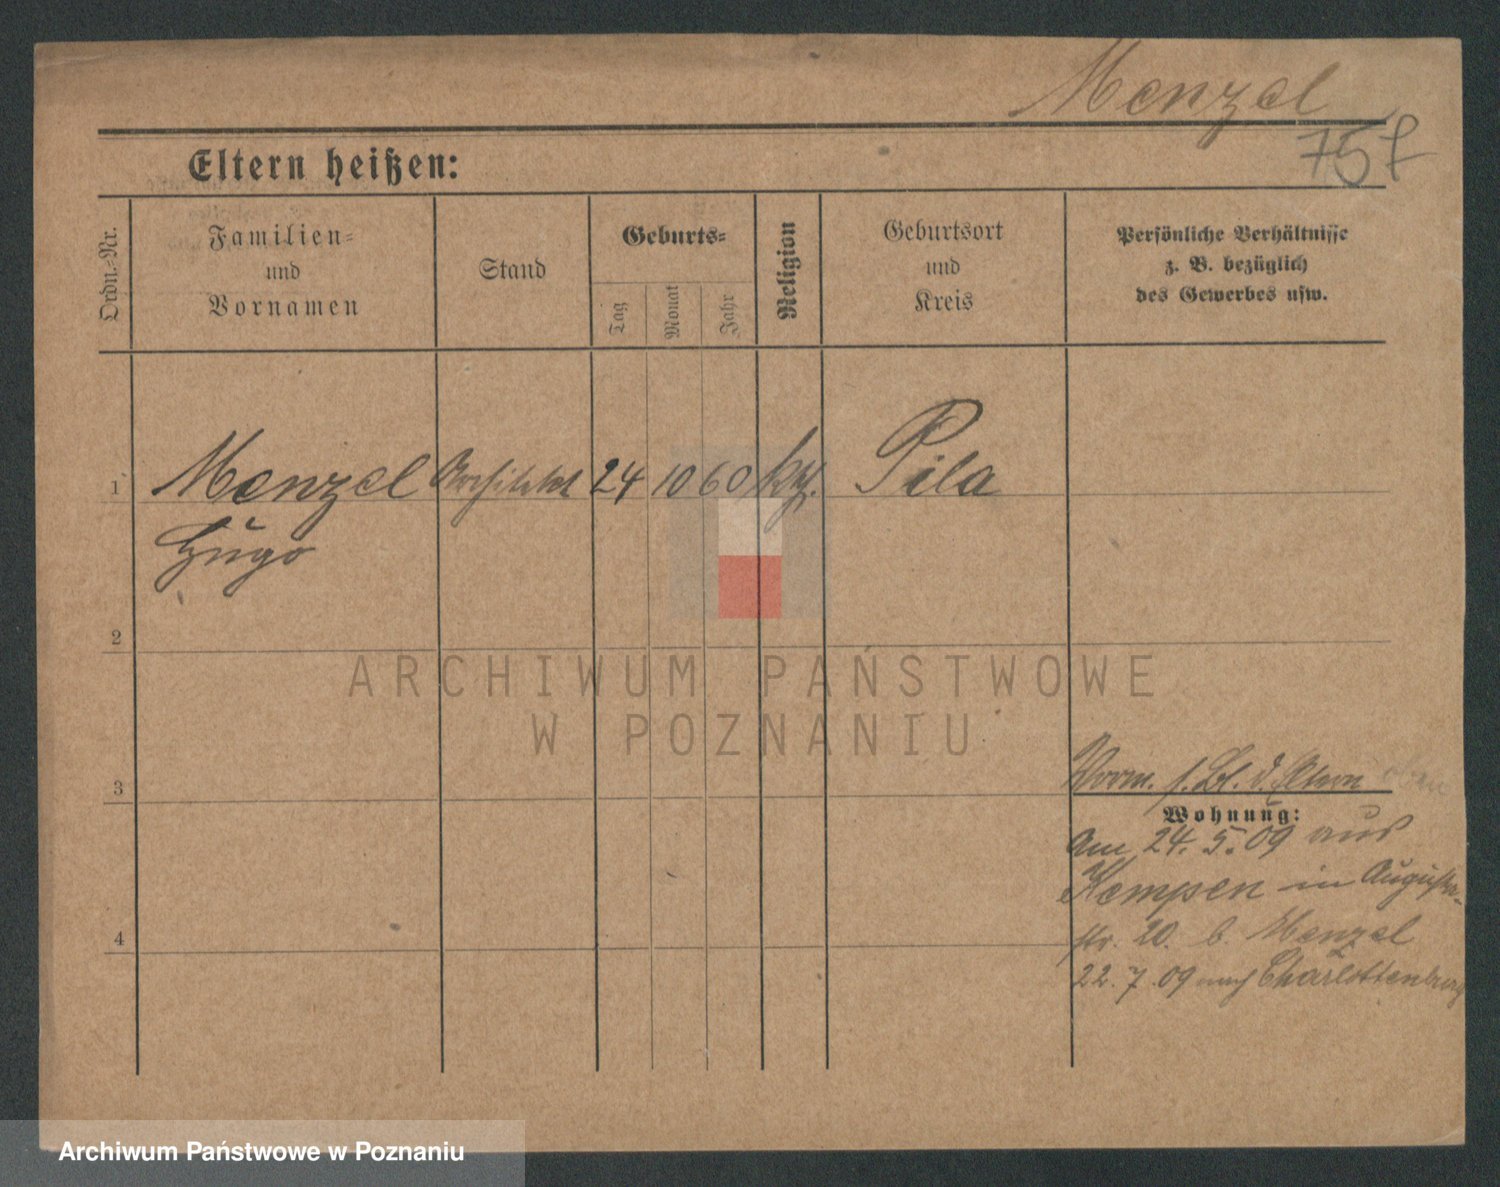 Menzel
757
Eltern heißen:
Ordn.-Nr.
Familien-
und
Vornamen
Stand
Geburts-
Tag
Monat
Jahr
Religion
Geburtsort
und
Kreis
Persönliche Verhältnisse
z. B. bezüglich
des Gewerbes usw.
1 Menzel Architekt 24 10 60 Pila
Hugo
2
ARCHIWUM PAŃSTWOWE
W POZNANIU
3
Vorm. s. Bl. d. Eltern oben
Wohnung:
Am 24. 5. 09 aus
Kempen in Augusta-
4
str. 20. b. Menzel
22. 7. 09 nach Charlottenburg
Archiwum Państwowe w Poznaniu